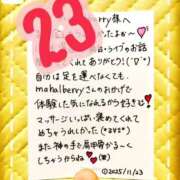 23
rry様へ
ったよぉ〜
日・ライブのお話
くれてありがとう!
自分は足を運べなくても、
mahalberryさんのおかげで
体験した気になれるから好きだ
マッサージいっぱい褒めてくれて
めちゃうれしかった
また神の手で肩甲骨かる〜く
しちゃうからね
©2025/11/23